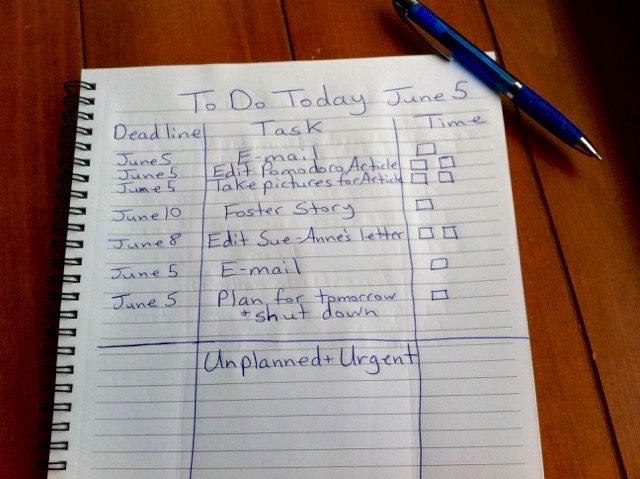 To Do Today June 5
Deadline Task Time
June 5 E-mail
June 5 Edit Pomodoro Article
June 5 Take pictures for Article
June 10 Foster Story
June 8 Edit Sue-Anne's letter
June 5 E-mail
June 5 Plan for tomorrow
+ shut down
Unplanned + Urgent